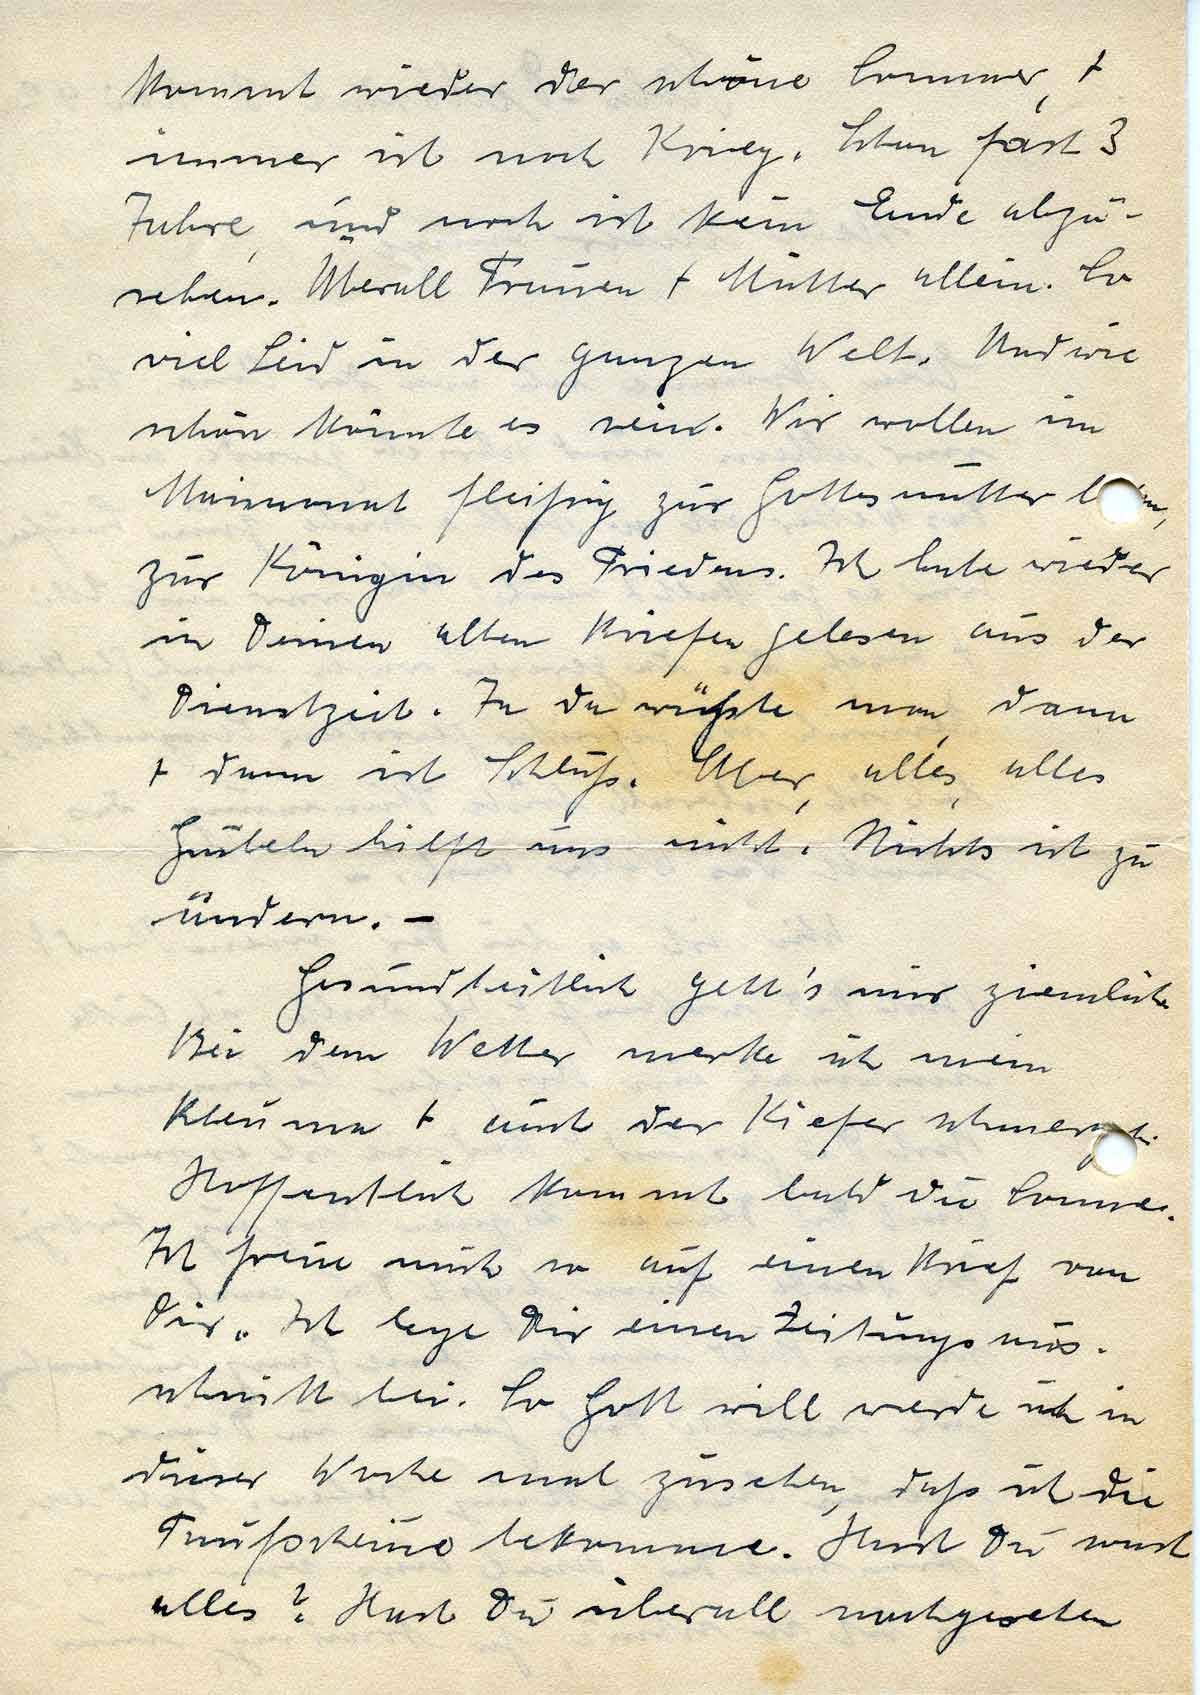 kommt wieder der schöne Sommer, +
immer ist noch Krieg. Schon fast 3
Jahre, und noch ist kein Ende abzu-
sehen. Überall Frauen + Mütter allein. So
viel Leid in der ganzen Welt. Und wie
schön könnte es sein. Wir wollen im
Maimonat fleißig zur Gottesmutter
zur Königin des Friedens. Ich habe wieder
in Deinen alten Briefen gelesen aus der
Dienstzeit. Ja da wußte man, dann
+ dann ist Schluß. Aber, alles, alles
Grübeln hilft uns nicht. Nichts ist zu
ändern. –
Gesundheitlich geht's mir ziemlich
Bei dem Wetter merke ich mein
Rheuma + auch der Kiefer
Hoffentlich kommt bald die Sonne.
Ich freue mich so auf einen Brief von
Dir. Ich lege Dir einen Zeitungsaus-
schnitt bei. So Gott will werde ich in
dieser Woche mal zusehen, daß ich die
Taufscheine bekomme. Hast Du noch
alles? Hast Du überall nachgesehen